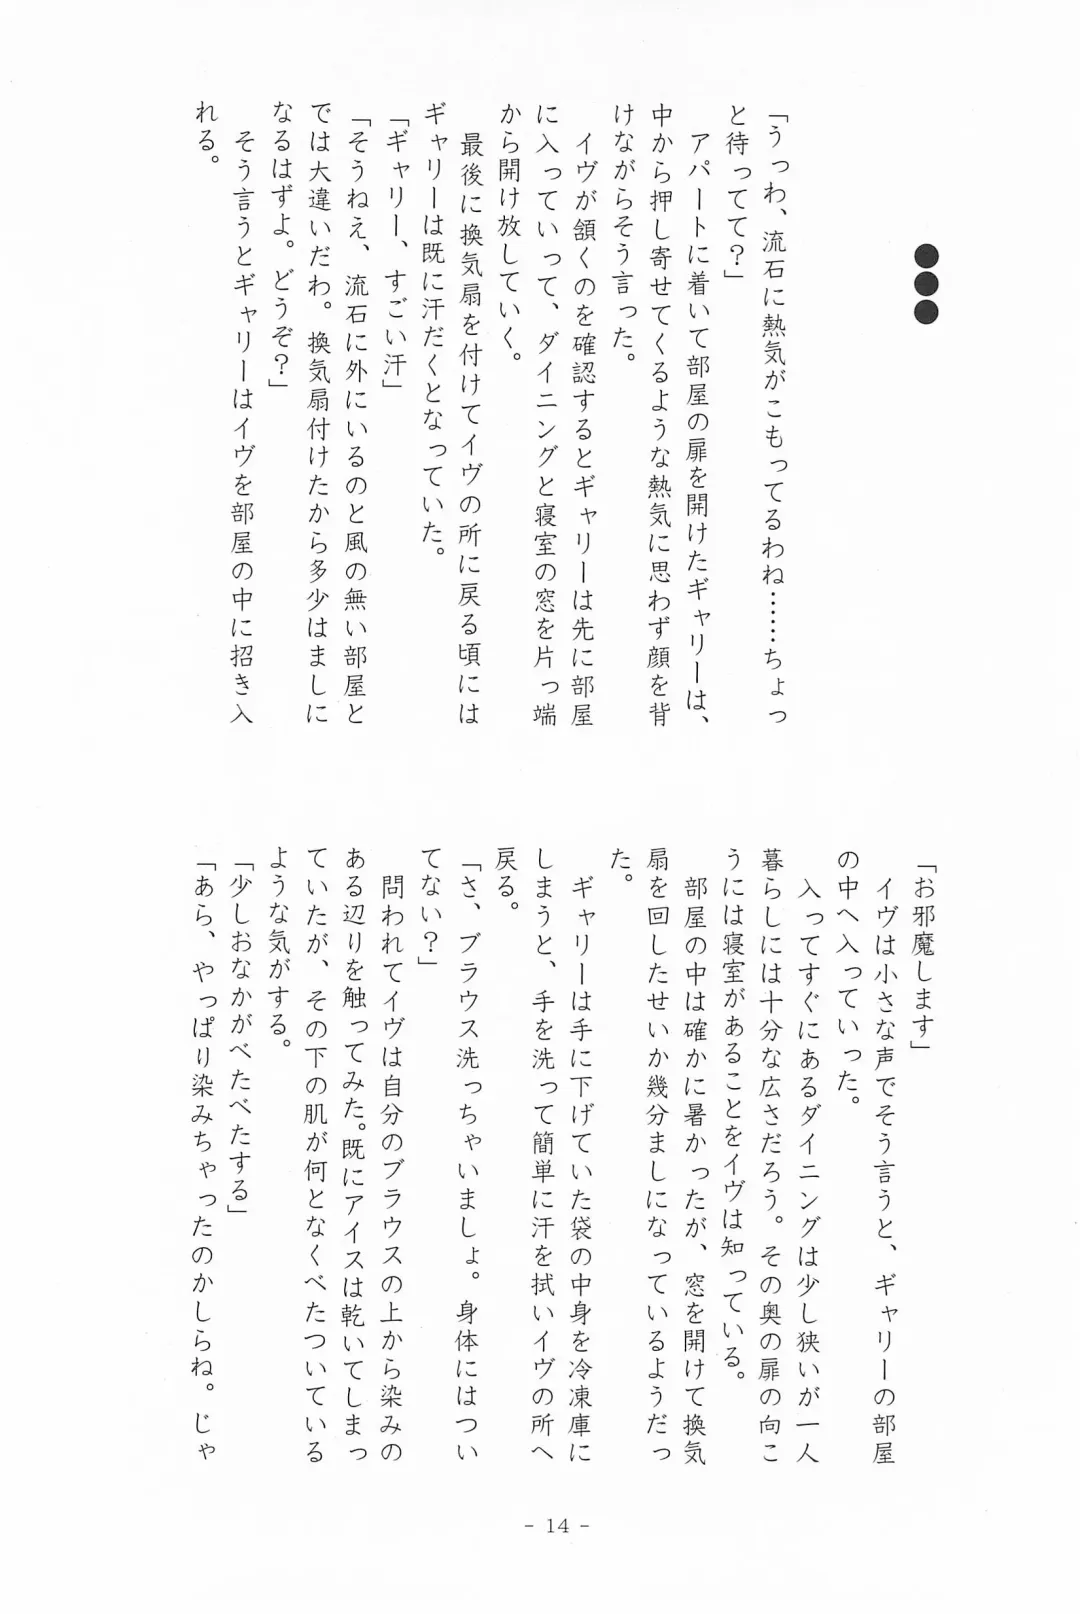 ●●●
「うっわ、流石に熱気がこもってるわね……ちょっ
と待ってて？」
アパートに着いて部屋の扉を開けたギャリーは、
中から押し寄せてくるような熱気に思わず顔を背
けながらそう言った。
イヴが頷くのを確認するとギャリーは先に部屋
に入っていって、ダイニングと寝室の窓を片っ端
から開け放していく。
最後に換気扇を付けてイヴの所に戻る頃には
ギャリーは既に汗だくとなっていた。
「ギャリー、すごい汗」
「そうねえ、流石に外にいるのと風の無い部屋と
では大違いだわ。換気扇付けたから多少はましに
なるはずよ。どうぞ？」
そう言うとギャリーはイヴを部屋の中に招き入
れる。
「お邪魔します」
イヴは小さな声でそう言うと、ギャリーの部屋
の中へ入っていった。
入ってすぐにあるダイニングは少し狭いが一人
暮らしには十分な広さだろう。その奥の扉の向こ
うには寝室があることをイヴは知っている。
部屋の中は確かに暑かったが、窓を開けて換気
扇を回したせいか幾分ましになっているようだっ
た。
ギャリーは手に下げていた袋の中身を冷凍庫に
しまうと、手を洗って簡単に汗を拭いイヴの所へ
戻る。
「さ、ブラウス洗っちゃいましょ。身体にはつい
てない？」
問われてイヴは自分のブラウスの上から染みの
ある辺りを触ってみた。既にアイスは乾いてしまっ
ていたが、その下の肌が何となくべたついている
ような気がする。
「少しおなかがべたべたする」
「あら、やっぱり染みちゃったのかしらね。じゃ
- 14 -